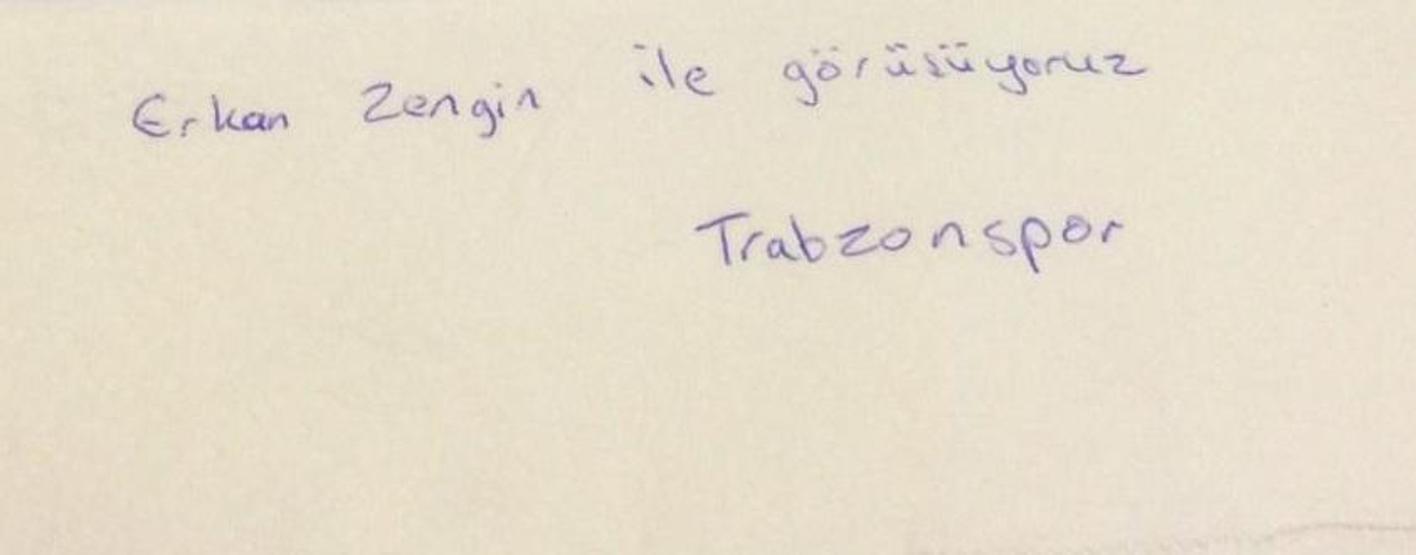 Erkan Zengin ile görüsüyoruz
Trabzonspor